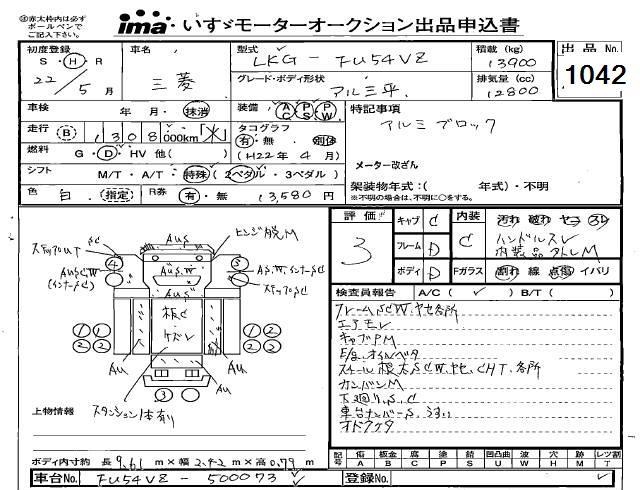 ※赤太枠内は必ず
ボールペンで
ご記入下さい。
ima いすゞモーターオークション出品申込書
初度登録 S・H・R 22年 5月
車名 三菱
型式 LKG-FU54VZ
グレード・ボディ形状 アルミ平.
積載 (kg) 13900
排気量 (cc) 12800
出品 No. 1042
車検 年・月・抹消
装備 AC PS PW
走行 B 1308,000km
タコグラフ 有・無 別体
(H22年 4月)
燃料 G・D・HV 他( )
シフト M/T・A/T・特殊 (2ペダル・3ペダル)
色 白. (指定) R券 有・無 13,580円
特記事項
アルミブロック
メーター改ざん
架装物年式:( 年式)・不明
※不明の場合は、不明に○をする。
評価 3
キャブ C
フレーム D
ボディ D
内装 C
汚れ 破れ ヤニ スレ
ハンドルスレ
内装品欠レM
Fガラス 割れ 線 点傷 イバリ
検査員報告 A/C ( ✓ ) B/T ( )
フレームSCW.ヤセ各所
エアモレ
キャブPM
E/g.オイルベタ
スチール根太SCW.ヤセ.CHT.各所
カンバンM
下廻り.S.C
車台ナンバーS.うすい
オドケタ
ステップUT
SC
AUS
ヒンジ脱M
AUSCW
(インナーSC)
AUS.W
AS.W.インナーSC
ステップSC
AUS
板C
・ケズレ
④ ③
① ① ① ①
② ② ② ②
AU AU
③
スタンション1本有り
上物情報
ボディ内寸約 長 9.61 m×幅 2.42 m×高 0.79 m
車台No. FU54VZ-500073
登録No.
記号 傷 A 板金 B 腐 C 塗 P 錆 S 凹凸曲 U 波 W 穴 H 跡 M レツ割 T